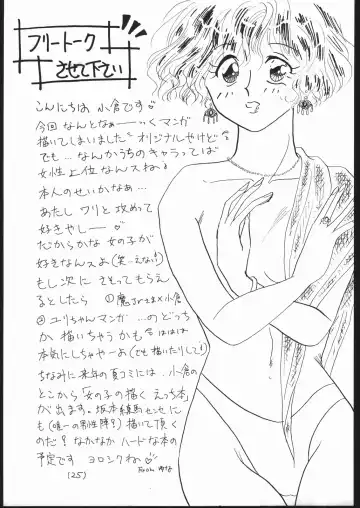 フリートーク
させて下さい
こんにちは 小倉です♡
今回 なんとなぁーーっく マンガ
描いてしまいました オリジナルやけど
でも… なんかうちのキャラってば
女性上位なんスね♡
本人のせいかなぁ…
あたし ワリと攻めて
好きやしー♡
だからかな 女の子が
好きなんスよ(笑…えない)
もし次に させてもらえ
るとしたら ①
②ユリちゃんマンガ…のどっち
か描いちゃうかも ははは
本気にしちゃやーよ(でも描いたりして)
ちなみに来年の夏コミには、小倉の
とこから「女の子の描くえっち本」
が出ます。坂本練馬センセにも
(唯一の男性陣?)描いて頂く
のだ? なかなか ハードな本の
予定です ヨロシクね♡
(25)